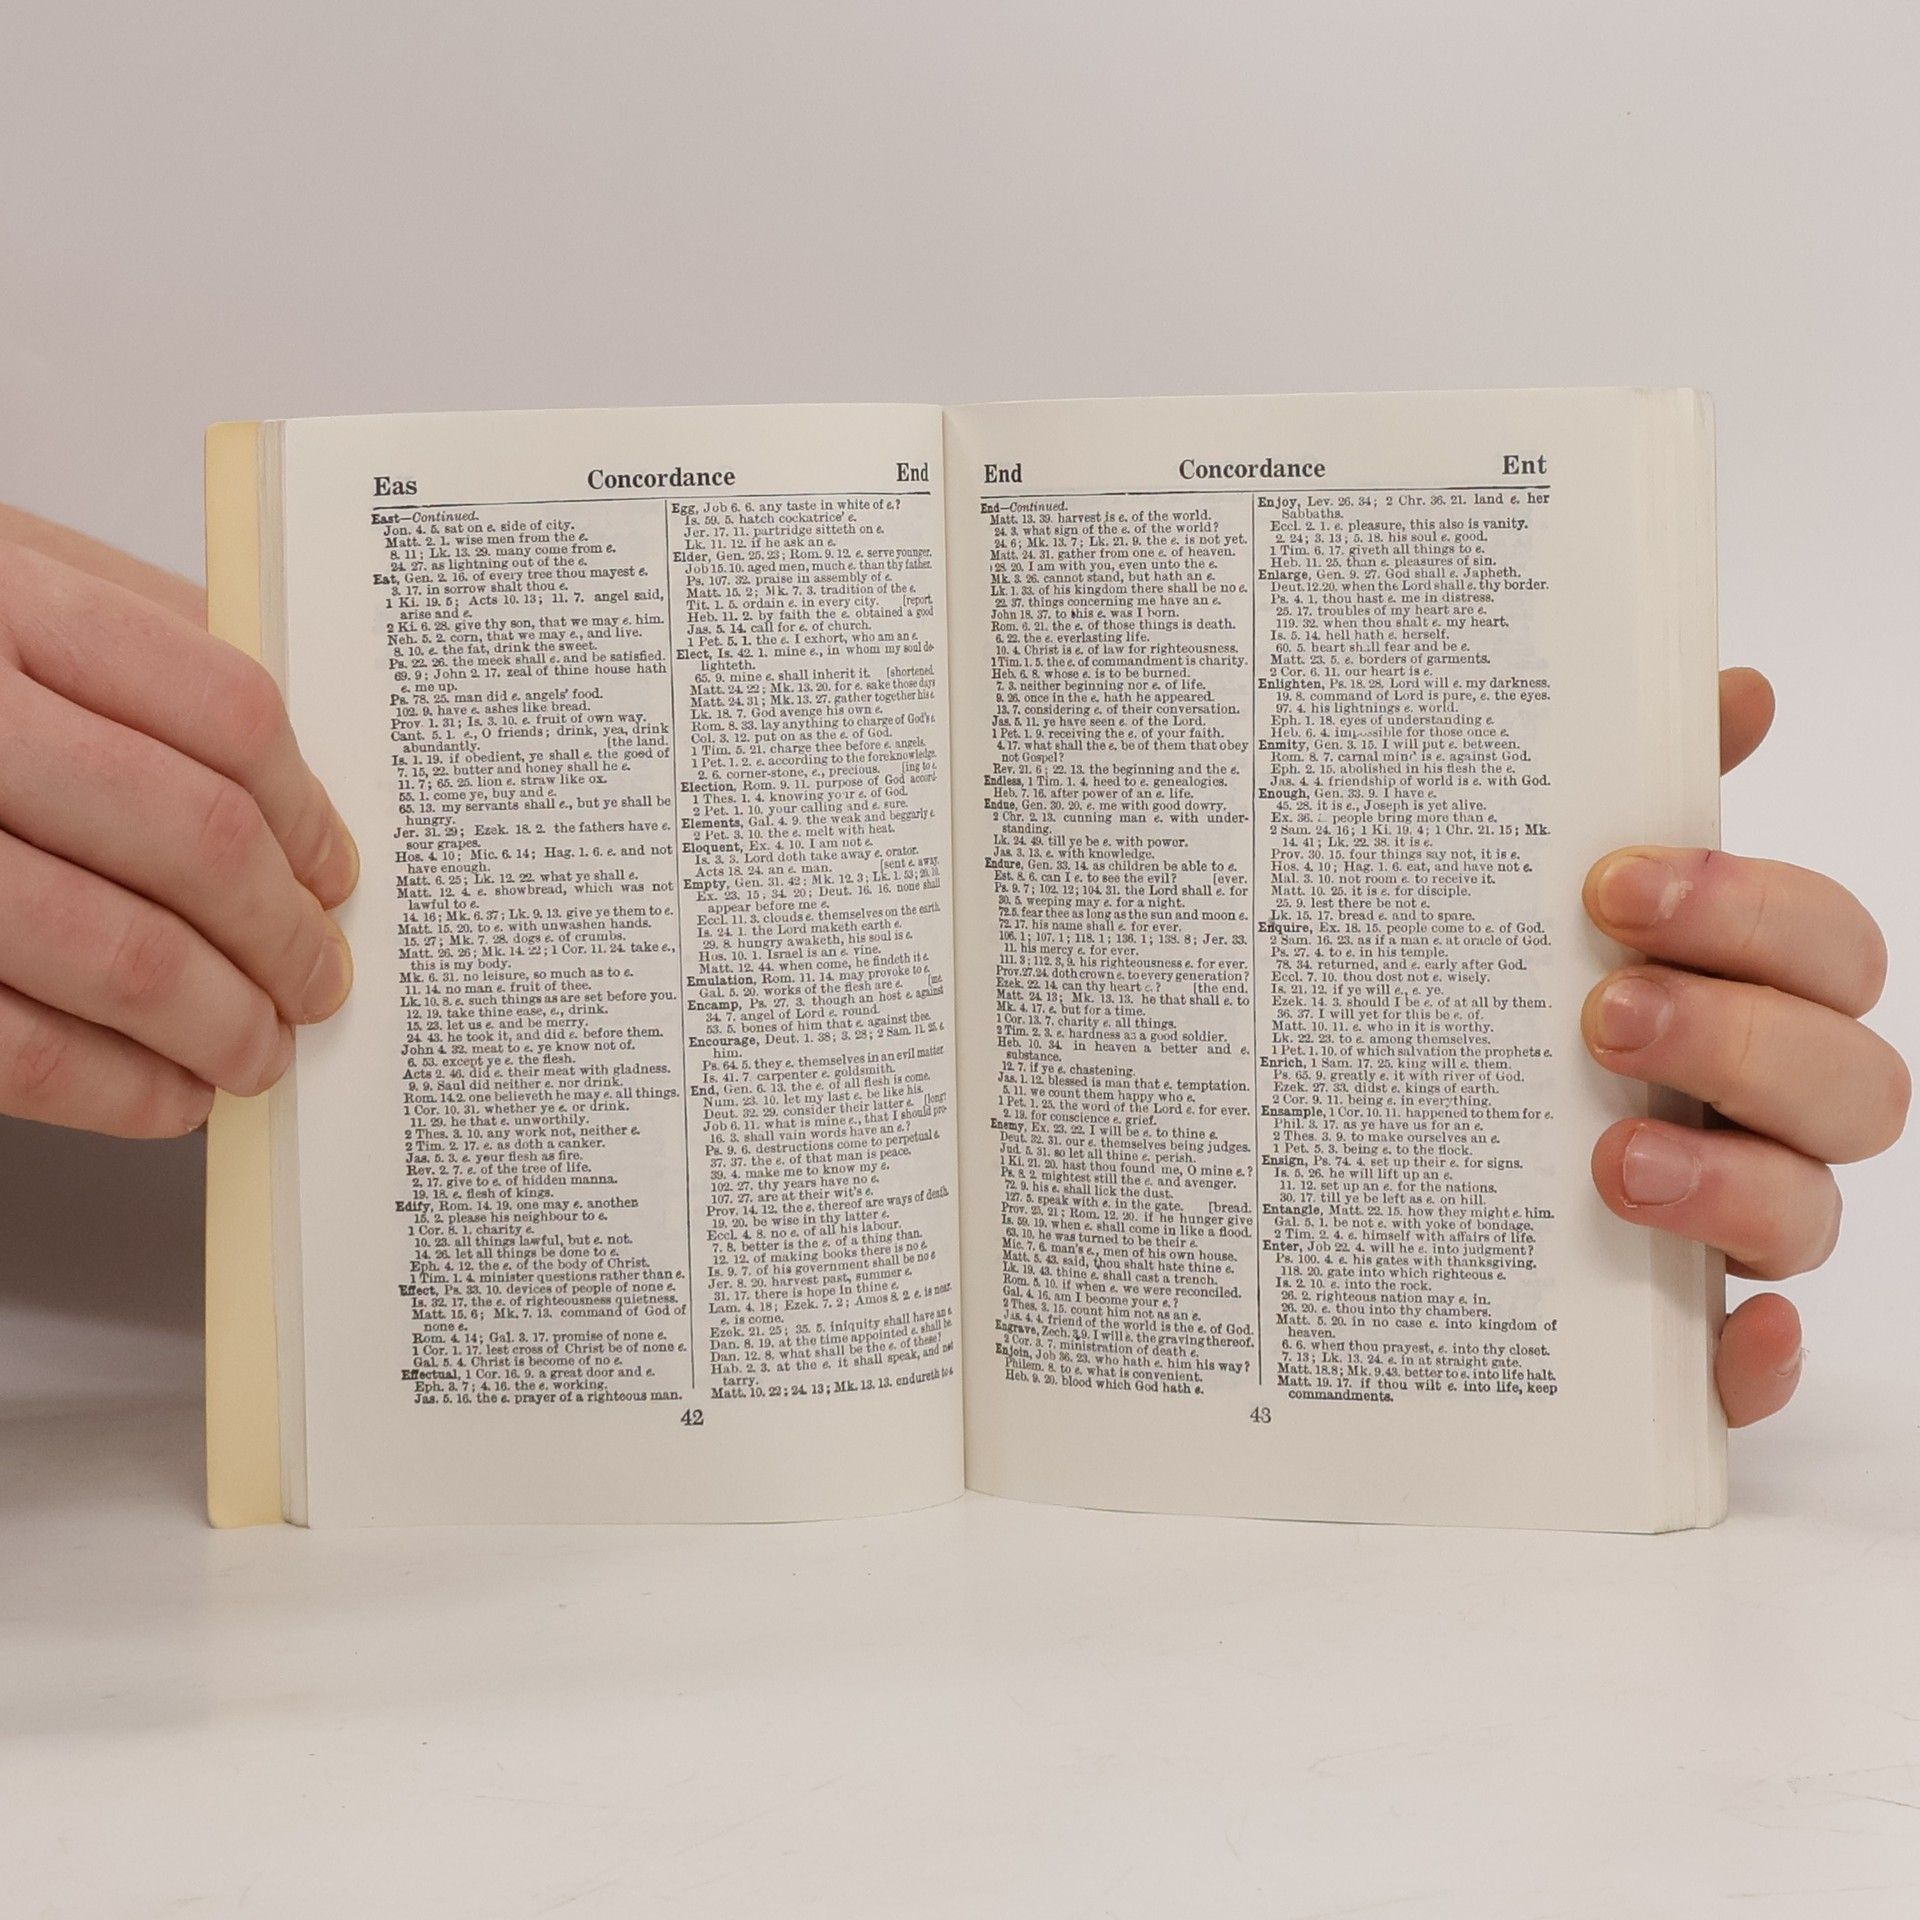 Eas Concordance End
East—Continued.
Jon. 4. 5. sat on e. side of city.
Matt. 2. 1. wise men from the e.
8. 11; Lk. 13. 29. many come from e.
24. 27. as lightning out of the e.
Eat, Gen. 2. 16. of every tree thou mayest e.
3. 17. in sorrow shalt thou e.
1 Ki. 19. 5; Acts 10. 13; 11. 7. angel said,
arise and e.
2 Ki. 6. 28. give thy son, that we may e. him.
Neh. 5. 2. corn, that we may e., and live.
8. 10. e. the fat, drink the sweet.
Ps. 22. 26. the meek shall e. and be satisfied.
69. 9; John 2. 17. zeal of thine house hath
e. me up.
Ps. 78. 25. man did e. angels' food.
102. 9. have e. ashes like bread.
Prov. 1. 31; Is. 3. 10. e. fruit of own way.
Cant. 5. 1. e., O friends; drink, yea, drink
abundantly. [the land.
Is. 1. 19. if obedient, ye shall e. the good of
7. 15, 22. butter and honey shall he e.
11. 7; 65. 25. lion e. straw like ox.
55. 1. come ye, buy and e.
65. 13. my servants shall e., but ye shall be
hungry.
Jer. 31. 29; Ezek. 18. 2. the fathers have e.
sour grapes.
Hos. 4. 10; Mic. 6. 14; Hag. 1. 6. e. and not
have enough.
Matt. 6. 25; Lk. 12. 22. what ye shall e.
Matt. 12. 4. e. showbread, which was not
lawful to e.
14. 16; Mk. 6. 37; Lk. 9. 13. give ye them to e.
Matt. 15. 20. to e. with unwashen hands.
15. 27; Mk. 7. 28. dogs e. of crumbs.
Matt. 26. 26; Mk. 14. 22; 1 Cor. 11. 24. take e.,
this is my body.
Mk. 6. 31. no leisure, so much as to e.
11. 14. no man e. fruit of thee.
Lk. 10. 8. e. such things as are set before you.
12. 19. take thine ease, e., drink.
15. 23. let us e. and be merry.
24. 43. he took it, and did e. before them.
John 4. 32. meat to e. ye know not of.
6. 53. except ye e. the flesh.
Acts 2. 46. did e. their meat with gladness.
9. 9. Saul did neither e. nor drink.
Rom. 14.2. one believeth he may e. all things.
1 Cor. 10. 31. whether ye e. or drink.
11. 29. he that e. unworthily.
2 Thes. 3. 10. any work not, neither e.
2 Tim. 2. 17. e. as doth a canker.
Jas. 5. 3. e. your flesh as fire.
Rev. 2. 7. e. of the tree of life.
2. 17. give to e. of hidden manna.
19. 18. e. flesh of kings.
Edify, Rom. 14. 19. one may e. another
15. 2. please his neighbour to e.
1 Cor. 8. 1. charity e.
10. 23. all things lawful, but e. not.
14. 26. let all things be done to e.
Eph. 4. 12. the e. of the body of Christ.
1 Tim. 1. 4. minister questions rather than e.
Effect, Ps. 33. 10. devices of people of none e.
Is. 32. 17. the e. of righteousness quietness.
Matt. 15. 6; Mk. 7. 13. command of God of
none e.
Rom. 4. 14; Gal. 3. 17. promise of none e.
1 Cor. 1. 17. lest cross of Christ be of none e.
Gal. 5. 4. Christ is become of no e.
Effectual, 1 Cor. 16. 9. a great door and e.
Eph. 3. 7; 4. 16. the e. working.
Jas. 5. 16. the e. prayer of a righteous man.
Egg, Job 6. 6. any taste in white of e.?
Is. 59. 5. hatch cockatrice' e.
Jer. 17. 11. partridge sitteth on e.
Lk. 11. 12. if he ask an e.
Elder, Gen. 25. 23; Rom. 9. 12. e. serve younger.
Job 15. 10. aged men, much e. than thy father.
Ps. 107. 32. praise in assembly of e.
Matt. 15. 2; Mk. 7. 3. tradition of the e.
Tit. 1. 5. ordain e. in every city. [report.
Heb. 11. 2. by faith the e. obtained a good
Jas. 5. 14. call for e. of church.
1 Pet. 5. 1. the e. I exhort, who am an e.
Elect, Is. 42. 1. mine e., in whom my soul de-
lighteth.
65. 9. mine e. shall inherit it. [shortened.
Matt. 24. 22; Mk. 13. 20. for e. sake those days
Matt. 24. 31; Mk. 13. 27. gather together his e.
Lk. 18. 7. God avenge his own e.
Rom. 8. 33. lay anything to charge of God's e.
Col. 3. 12. put on as the e. of God.
1 Tim. 5. 21. charge thee before e. angels.
1 Pet. 1. 2. e. according to the foreknowledge.
2. 6. corner-stone, e., precious. [ing to e.
Election, Rom. 9. 11. purpose of God accord-
1 Thes. 1. 4. knowing your e. of God.
2 Pet. 1. 10. your calling and e. sure.
Elements, Gal. 4. 9. the weak and beggarly e.
2 Pet. 3. 10. the e. melt with heat.
Eloquent, Ex. 4. 10. I am not e.
Is. 3. 3. Lord doth take away e. orator.
Acts 18. 24. an e. man. [sent e. away.
Empty, Gen. 31. 42; Mk. 12. 3; Lk. 1. 53; 20. 10.
Ex. 23. 15; 34. 20; Deut. 16. 16. none shall
appear before me e.
Eccl. 11. 3. clouds e. themselves on the earth.
Is. 24. 1. the Lord maketh earth e.
29. 8. hungry awaketh, his soul is e.
Hos. 10. 1. Israel is an e. vine.
Matt. 12. 44. when come, he findeth it e.
Emulation, Rom. 11. 14. may provoke to e.
Gal. 5. 20. works of the flesh are e. [me.
Encamp, Ps. 27. 3. though an host e. against
34. 7. angel of Lord e. round.
53. 5. bones of him that e. against thee.
Encourage, Deut. 1. 38; 3. 28; 2 Sam. 11. 25. e.
him.
Ps. 64. 5. they e. themselves in an evil matter
Is. 41. 7. carpenter e. goldsmith.
End, Gen. 6. 13. the e. of all flesh is come.
Num. 23. 10. let my last e. be like his.
Deut. 32. 29. consider their latter e. [long?
Job 6. 11. what is mine e., that I should pro-
16. 3. shall vain words have an e.?
Ps. 9. 6. destructions come to perpetual e.
37. 37. the e. of that man is peace.
39. 4. make me to know my e.
102. 27. thy years have no e.
107. 27. are at their wit's e.
Prov. 14. 12. the e. thereof are ways of death.
19. 20. be wise in thy latter e.
Eccl. 4. 8. no e. of all his labour.
7. 8. better is the e. of a thing than.
12. 12. of making books there is no e.
Is. 9. 7. of his government shall be no e
Jer. 8. 20. harvest past, summer e.
31. 17. there is hope in thine e.
Lam. 4. 18; Ezek. 7. 2; Amos 8. 2. e. is near.
e. is come.
Ezek. 21. 25; 35. 5. iniquity shall have an e.
Dan. 8. 19. at the time appointed e. shall be.
Dan. 12. 8. what shall be the e. of these?
Hab. 2. 3. at the e. it shall speak, and not
tarry.
Matt. 10. 22; 24. 13; Mk. 13. 13. endureth to e
42
End Concordance Ent
End—Continued.
Matt. 13. 39. harvest is e. of the world.
24. 3. what sign of the e. of the world?
24. 6; Mk. 13. 7; Lk. 21. 9. the e. is not yet.
Matt. 24. 31. gather from one e. of heaven.
28. 20. I am with you, even unto the e.
Mk. 3. 26. cannot stand, but hath an e.
Lk. 1. 33. of his kingdom there shall be no e.
22. 37. things concerning me have an e.
John 18. 37. to this e. was I born.
Rom. 6. 21. the e. of those things is death.
6. 22. the e. everlasting life.
10. 4. Christ is e. of law for righteousness.
1 Tim. 1. 5. the e. of commandment is charity.
Heb. 6. 8. whose e. is to be burned.
7. 3. neither beginning nor e. of life.
9. 26. once in the e. hath he appeared.
13. 7. considering e. of their conversation.
Jas. 5. 11. ye have seen e. of the Lord.
1 Pet. 1. 9. receiving the e. of your faith.
4. 17. what shall the e. be of them that obey
not Gospel?
Rev. 21. 6; 22. 13. the beginning and the e.
Endless, 1 Tim. 1. 4. heed to e. genealogies.
Heb. 7. 16. after power of an e. life.
Endue, Gen. 30. 20. e. me with good dowry.
2 Chr. 2. 13. cunning man e. with under-
standing.
Lk. 24. 49. till ye be e. with power.
Jas. 3. 13. e. with knowledge.
Endure, Gen. 33. 14. as children be able to e.
Est. 8. 6. can I e. to see the evil? [ever.
Ps. 9. 7; 102. 12; 104. 31. the Lord shall e. for
30. 5. weeping may e. for a night.
72. 5. fear thee as long as the sun and moon e.
72. 17. his name shall e. for ever.
106. 1; 107. 1; 118. 1; 136. 1; 138. 8; Jer. 33.
11. his mercy e. for ever.
111. 3; 112. 3, 9. his righteousness e. for ever.
Prov. 27. 24. doth crown e. to every generation?
Ezek. 22. 14. can thy heart e.? [the end.
Matt. 24. 13; Mk. 13. 13. he that shall e. to
Mk. 4. 17. e. but for a time.
1 Cor. 13. 7. charity e. all things.
2 Tim. 2. 3. e. hardness as a good soldier.
Heb. 10. 34. in heaven a better and e.
substance.
12. 7. if ye e. chastening.
Jas. 1. 12. blessed is man that e. temptation.
5. 11. we count them happy who e.
1 Pet. 1. 25. the word of the Lord e. for ever.
2. 19. for conscience e. grief.
Enemy, Ex. 23. 22. I will be e. to thine e.
Deut. 32. 31. our e. themselves being judges.
Jud. 5. 31. so let all thine e. perish.
1 Ki. 21. 20. hast thou found me, O mine e.?
Ps. 8. 2. mightest still the e. and avenger.
72. 9. his e. shall lick the dust.
127. 5. speak with e. in the gate. [bread.
Prov. 25. 21; Rom. 12. 20. if he hunger give
Is. 59. 19. when e. shall come in like a flood.
63. 10. he was turned to be their e.
Mic. 7. 6. man's e., men of his own house.
Matt. 5. 43. said, thou shalt hate thine e.
Lk. 19. 43. thine e. shall cast a trench.
Rom. 5. 10. if when e. we were reconciled.
Gal. 4. 16. am I become your e.?
2 Thes. 3. 15. count him not as an e.
Jas. 4. 4. friend of the world is the e. of God.
Engrave, Zech. 3. 9. I will e. the graving thereof.
2 Cor. 3. 7. ministration of death e.
Enjoin, Job 36. 23. who hath e. him his way?
Philem. 8. to e. what is convenient.
Heb. 9. 20. blood which God hath e.
Enjoy, Lev. 26. 34; 2 Chr. 36. 21. land e. her
Sabbaths.
Eccl. 2. 1. e. pleasure, this also is vanity.
2. 24; 3. 13; 5. 18. his soul e. good.
1 Tim. 6. 17. giveth all things to e.
Heb. 11. 25. than e. pleasures of sin.
Enlarge, Gen. 9. 27. God shall e. Japheth.
Deut. 12. 20. when the Lord shall e. thy border.
Ps. 4. 1. thou hast e. me in distress.
25. 17. troubles of my heart are e.
119. 32. when thou shalt e. my heart.
Is. 5. 14. hell hath e. herself.
60. 5. heart shall fear and be e.
Matt. 23. 5. e. borders of garments.
2 Cor. 6. 11. our heart is e.
Enlighten, Ps. 18. 28. Lord will e. my darkness.
19. 8. command of Lord is pure, e. the eyes.
97. 4. his lightnings e. world.
Eph. 1. 18. eyes of understanding e.
Heb. 6. 4. impossible for those once e.
Enmity, Gen. 3. 15. I will put e. between.
Rom. 8. 7. carnal mind is e. against God.
Eph. 2. 15. abolished in his flesh the e.
Jas. 4. 4. friendship of world is e. with God.
Enough, Gen. 33. 9. I have e.
45. 28. it is e., Joseph is yet alive.
Ex. 36. people bring more than e.
2 Sam. 24. 16; 1 Ki. 19. 4; 1 Chr. 21. 15; Mk.
14. 41; Lk. 22. 38. it is e.
Prov. 30. 15. four things say not, it is e.
Hos. 4. 10; Hag. 1. 6. eat, and have not e.
Mal. 3. 10. not room e. to receive it.
Matt. 10. 25. it is e. for disciple.
25. 9. lest there be not e.
Lk. 15. 17. bread e. and to spare.
Enquire, Ex. 18. 15. people come to e. of God.
2 Sam. 16. 23. as if a man e. at oracle of God.
Ps. 27. 4. to e. in his temple.
78. 34. returned, and e. early after God.
Eccl. 7. 10. thou dost not e. wisely.
Is. 21. 12. if ye will e., e. ye.
Ezek. 14. 3. should I be e. of at all by them.
36. 37. I will yet for this be e. of.
Matt. 10. 11. e. who in it is worthy.
Lk. 22. 23. to e. among themselves.
1 Pet. 1. 10. of which salvation the prophets e.
Enrich, 1 Sam. 17. 25. king will e. them.
Ps. 65. 9. greatly e. it with river of God.
Ezek. 27. 33. didst e. kings of earth.
2 Cor. 9. 11. being e. in everything.
Ensample, 1 Cor. 10. 11. happened to them for e.
Phil. 3. 17. as ye have us for an e.
2 Thes. 3. 9. to make ourselves an e.
1 Pet. 5. 3. being e. to the flock.
Ensign, Ps. 74. 4. set up their e. for signs.
Is. 5. 26. he will lift up an e.
11. 12. set up an e. for the nations.
30. 17. till ye be left as e. on hill.
Entangle, Matt. 22. 15. how they might e. him.
Gal. 5. 1. be not e. with yoke of bondage.
2 Tim. 2. 4. e. himself with affairs of life.
Enter, Job 22. 4. will he e. into judgment?
Ps. 100. 4. e. his gates with thanksgiving.
118. 20. gate into which righteous e.
Is. 2. 10. e. into the rock.
26. 2. righteous nation may e. in.
26. 20. e. thou into thy chambers.
Matt. 5. 20. in no case e. into kingdom of
heaven.
6. 6. when thou prayest, e. into thy closet.
7. 13; Lk. 13. 24. e. in at straight gate.
Matt. 18.8; Mk. 9.43. better to e. into life halt.
Matt. 19. 17. if thou wilt e. into life, keep
commandments.
43